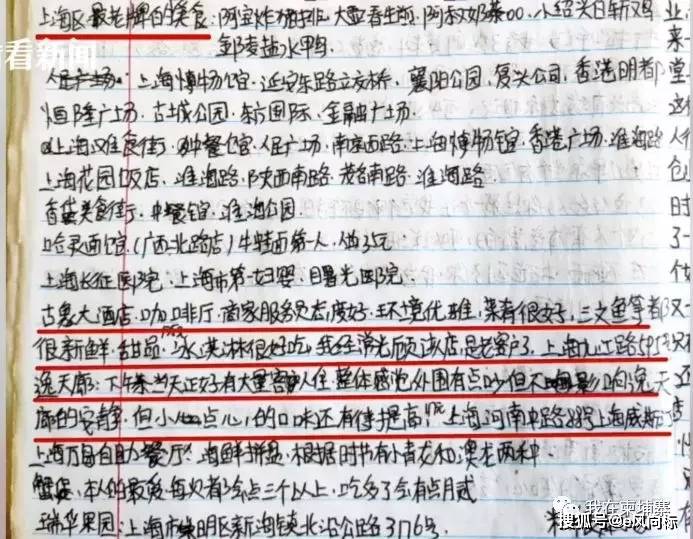 看看新闻
上海区最老牌的美食:阿宝炸猪排、大壶春生煎、阿婆奶茶00、小绍兴白斩鸡
邹凌盐水鸭
人民广场、上海博物馆、延安东路立交桥、襄阳公园、复兴公司、香港明都
恒隆广场、古城公园、东方国际、金融广场
上海美食街、中餐馆、人民广场、南京西路、上海博物馆、香港广场、淮海路
上海花园饭店、淮海路、陕西南路、茂名南路、淮海路
美食街、中餐馆、淮海公园
哈灵面馆、(广西北路店)牛蛙面第一人、做25元
上海长征医院、上海市第一妇婴、曙光医院
古象大酒店、咖啡厅、商家服务员态度好、环境优雅、菜肴很好、三文鱼等都
很新鲜、甜品、冰淇淋很好吃、我经常光顾该店、是老客户了、上海九江路595号
逸天廊:下午茶当天正好有大量客人入住、整体感觉外围有点吵但不影响逸天
廊的安静、但小点心的口味还有待提高、上海河南中路88号上海威斯
上海万豪自助餐厅:海鲜拼盘、根据时节有小青龙和澳龙两种
蟹煲、本人的最爱每次都会点三个以上、吃多了会有点月贰
瑞华果园:上海市崇明区新海镇北沿公路3176号
我在柬埔寨
搜狐号@风向标